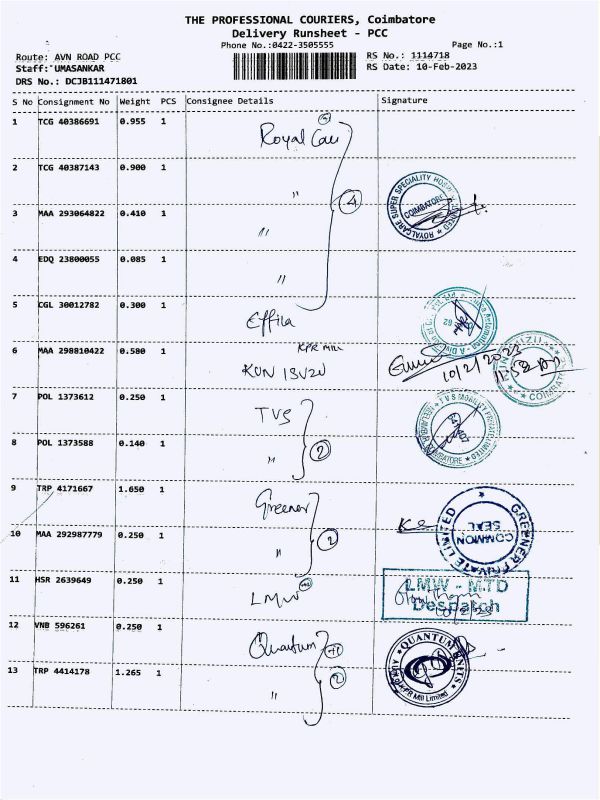 THE PROFESSIONAL COURIERS, Coimbatore
Delivery Runsheet - PCC
Phone No.:0422-3505555
Page No.:1
Route: AVN ROAD PCC
RS No.: 1114718
Staff: UMASANKAR
RS Date: 10-Feb-2023
DRS No.: DCJB111471801
S No Consignment No Weight PCS Consignee Details Signature
1 TCG 40386691 0.955 1 Royal Care
2 TCG 40387143 0.900 1 "
4
ROYALCARE SUPER SPECIALITY HOSPITAL LIMITED
COIMBATORE
3 MAA 293064822 0.410 1 "
4 EDQ 23800055 0.085 1 "
5 CGL 30012782 0.300 1 Effila
KPR Mill
6 MAA 298810422 0.580 1 KUN ISUZU
10/2/2023
11:52 am
KUN ISUZU
COIMBATORE
7 POL 1373612 0.250 1 TVS
TVS MOBILITY PRIVATE LIMITED
COIMBATORE
8 POL 1373588 0.140 1 "
2
9 TRP 4171667 1.650 1 Greener
GREENER PRIVATE LIMITED
COMMON
SEAL
10 MAA 292987779 0.250 1 "
2
11 HSR 2639649 0.250 1 LMW
LMW - MTD
Despatch
12 VNB 596261 0.250 1 Quantum
QUANTUM KNITS
A Unit of KPR Mill Limited
13 TRP 4414178 1.265 1 "
2